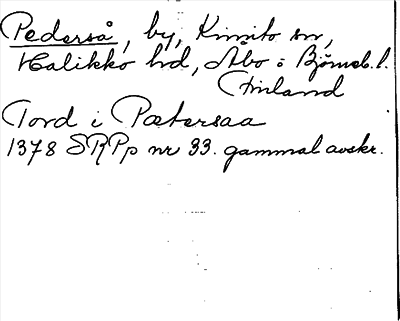 Pederså, by, Kimito sn,
Halikko hd, Åbo o Björneb. l.
Finland
Tord i Pætersaa
1378 SRPp nr 33. gammal avskr.